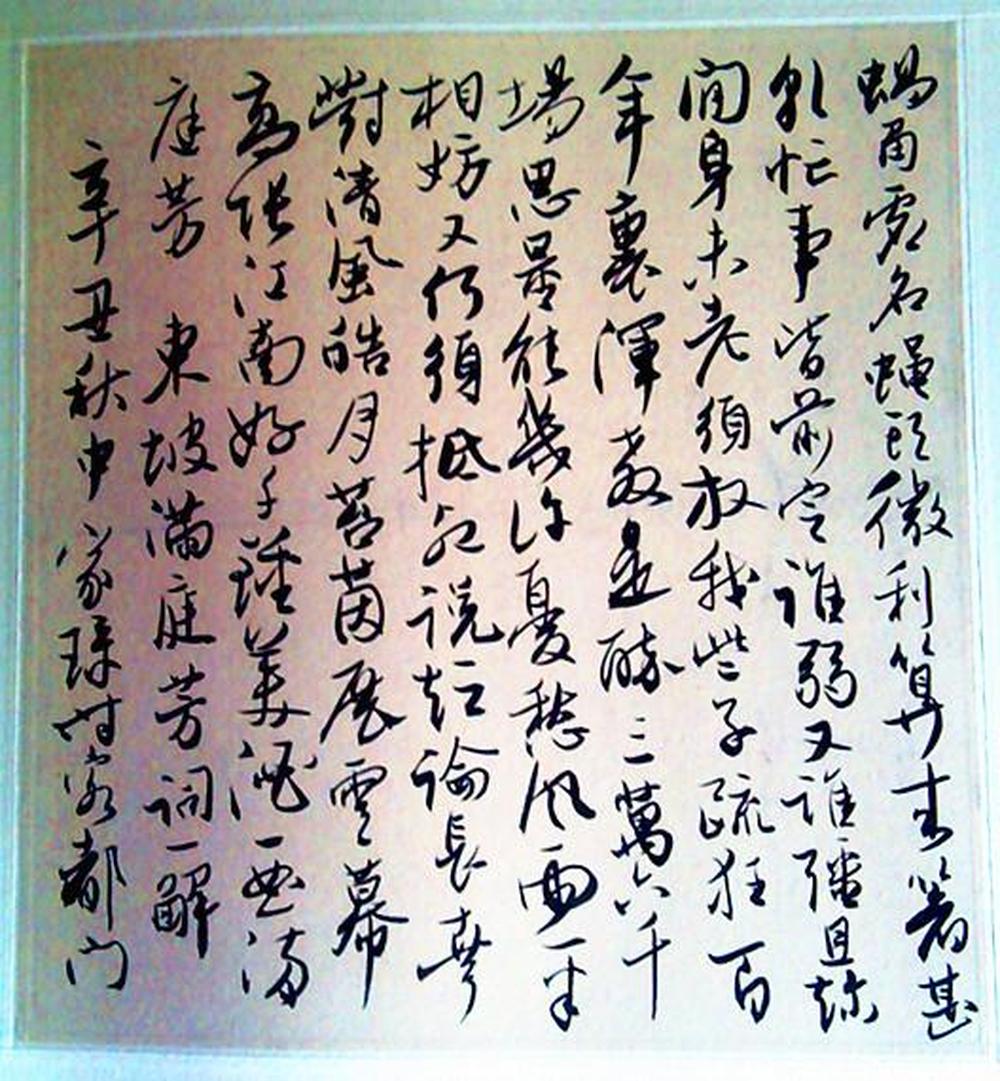 蝸角虛名蠅頭微利算來著甚
乾忙事皆前定誰弱又誰彊且趁
閒身未老須放我些子疏狂百
年裏渾教是醉三萬六千
場思量能幾許憂愁風雨一半
相妨又何須抵死說短論長幸
對清風皓月苔茵展雲幕
高張江南好千鍾美酒一曲滿
庭芳 東坡滿庭芳詞一解
辛丑秋中 家時客都門